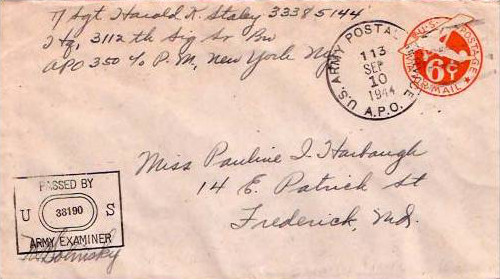 T/Sgt Harold K. Staley 33385144
Hq, 3112 th Sig Sv Bn
APO 350 c/o P.M., New York Ny
U.S. ARMY POSTAL SERVICE
113
SEP
10
1944
A.P.O.
U.S. POSTAGE
6¢
VIA AIR MAIL
Miss Pauline I. Harbaugh
14 E. Patrick St
Frederick, Md.
PASSED BY
U 38190 S
ARMY EXAMINER